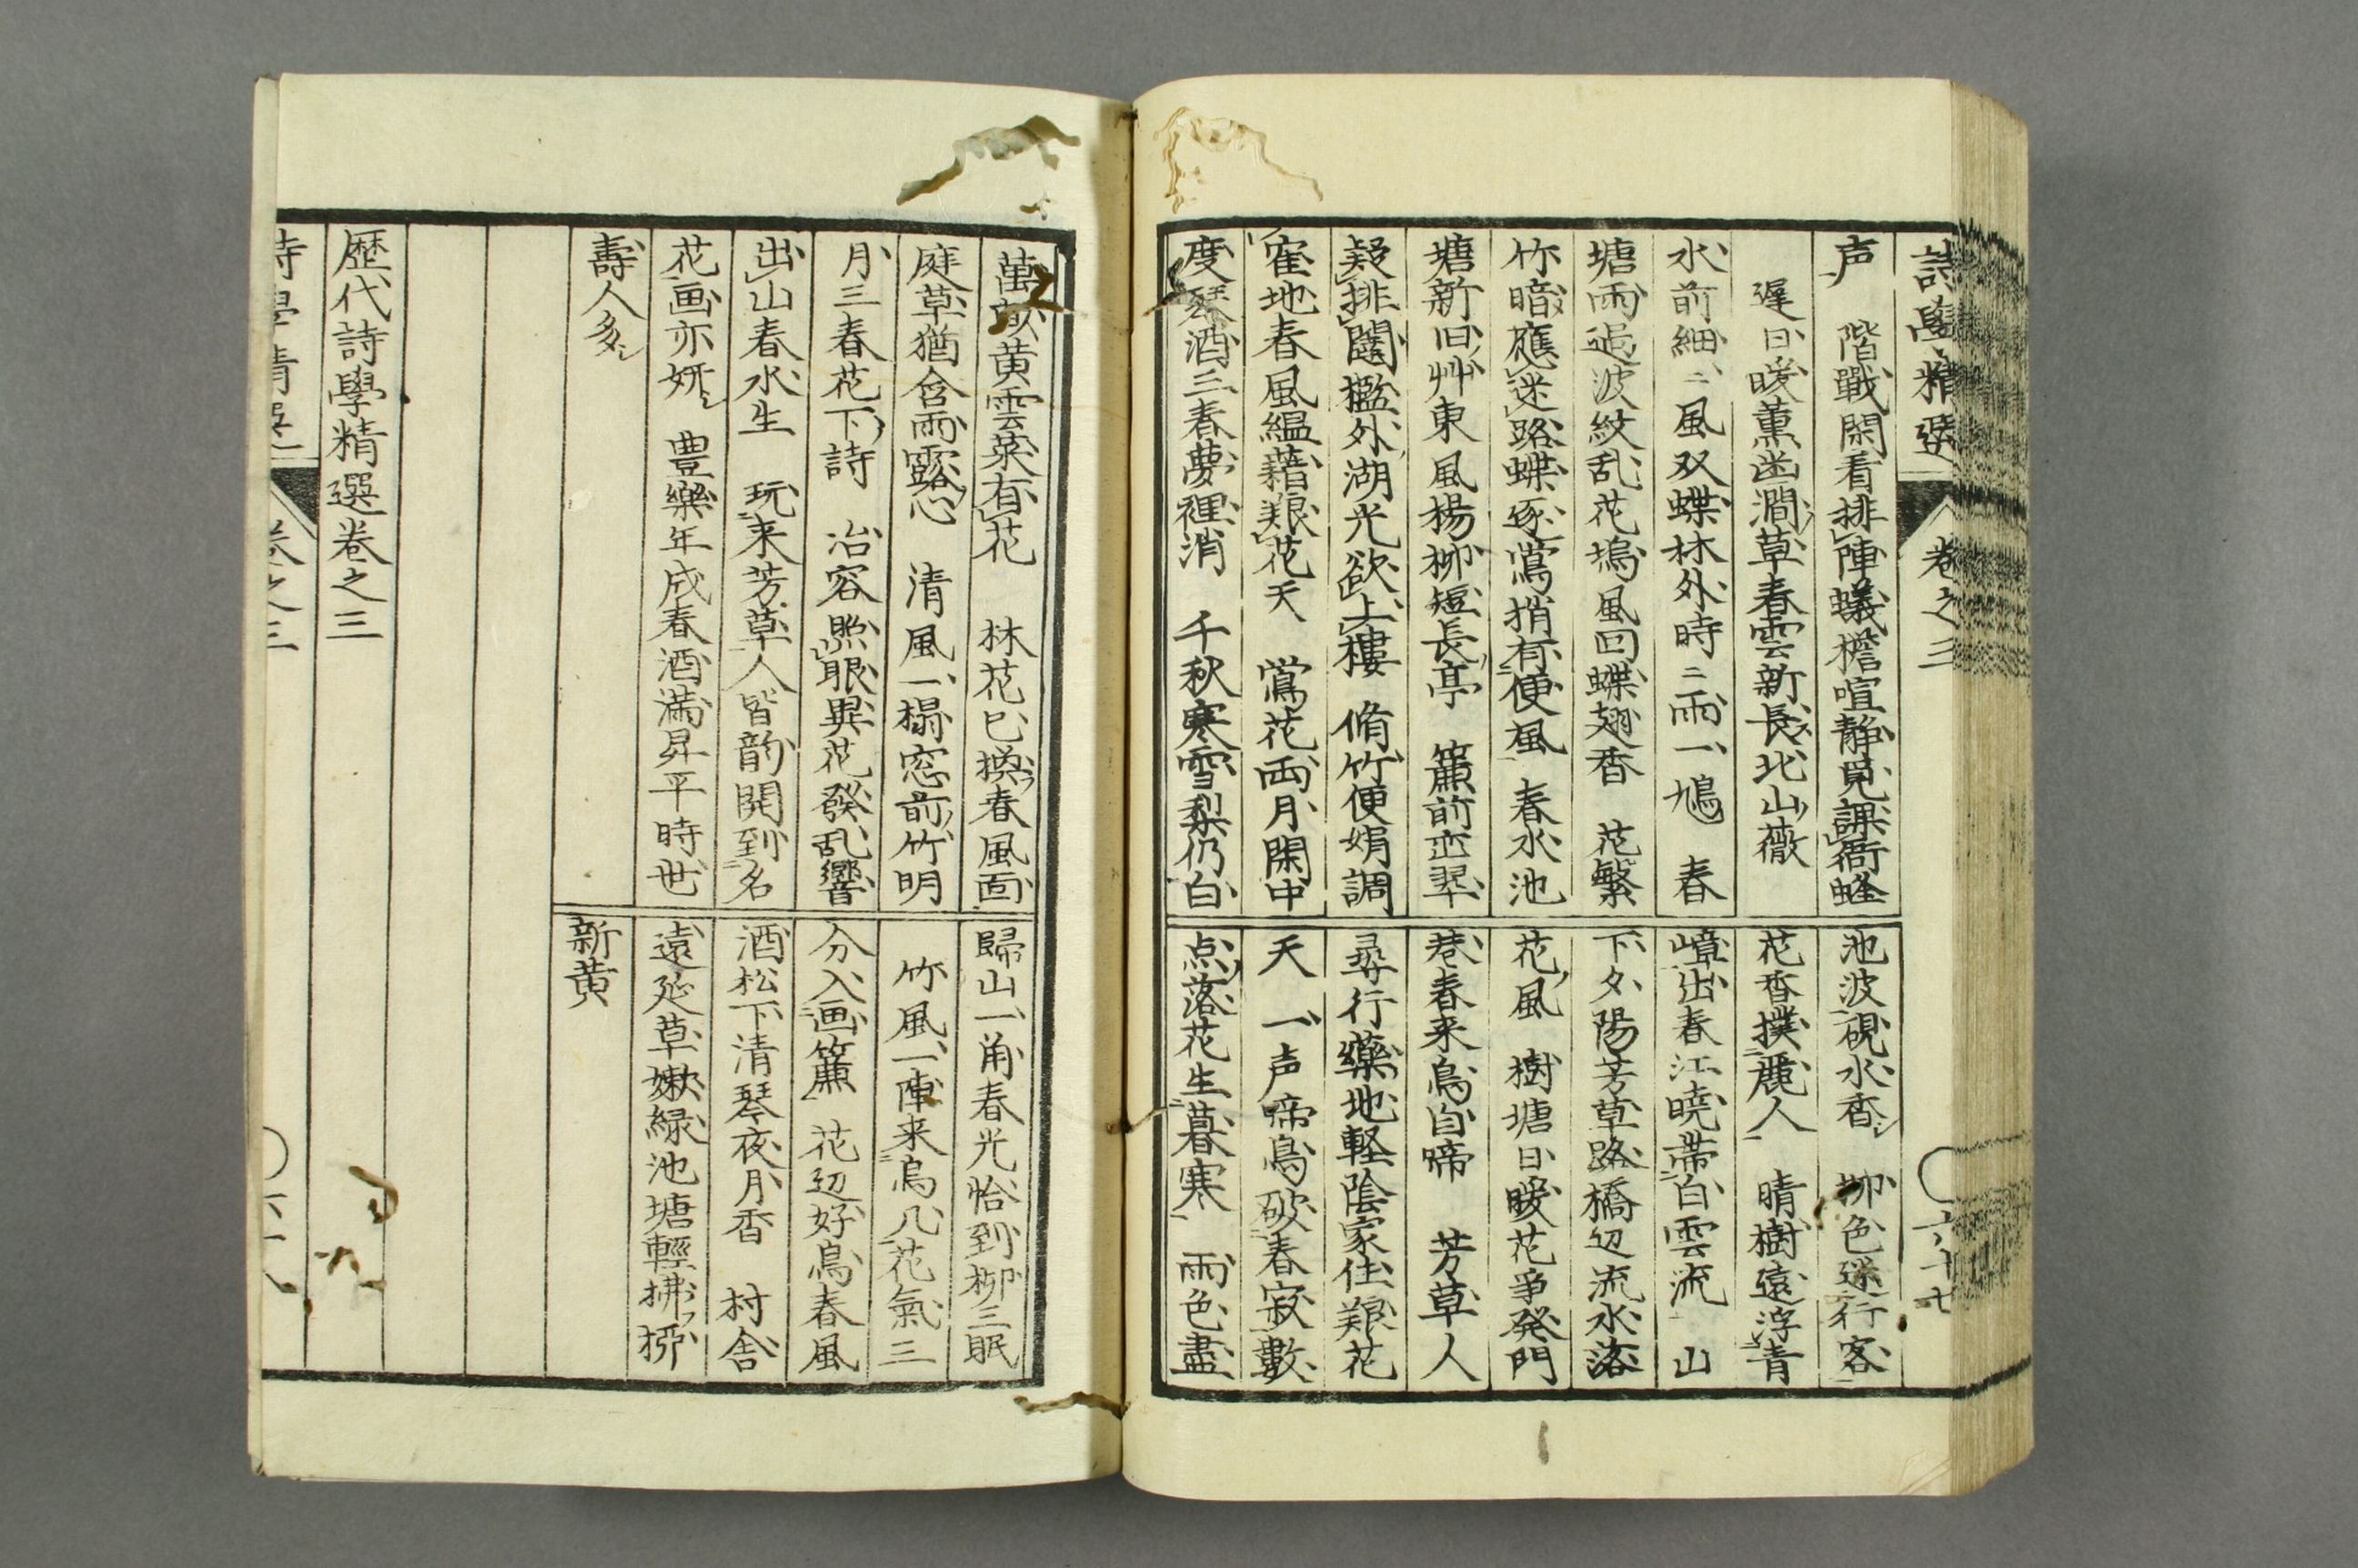 詩學精選 卷之三 六十七
声 階戰閑看排陣蟻檐喧靜覓課衙蜂
遲日暖薫幽澗草春雲新長北山薇
水前細〻風双蝶林外時〻雨一鳩 春
塘雨過波紋乱花塢風回蝶翅香 花繁
竹暗應迷路蝶逐鶯捎有便風 春水池
塘新旧艸東風楊柳短長亭 簾前峦翠
疑排闥檻外湖光欲上樓 脩竹便娟調
隺地春風縕藉養花天 鶯花雨月閑中
度琴酒三春夢裡消 千秋寒雪梨仍白
池波硯水香 柳色迷行客
花香撲麗人 晴樹遠浮青
嶂出春江暁帯白雲流 山
下夕陽芳草路橋辺流水落
花風 樹塘日暖花爭発門
巷春来鳥自啼 芳草人
尋行藥地軽陰家住養花
天 一声啼鳥破春寂數
点落花生暮寒 雨色盡
萬畝黄雲菜有花 林花已換春風面
庭草猶含雨露心 清風一榻窓前竹明
月三春花下詩 冶容照眼異花發乱響
出山春水生 玩来芳草人皆韵開到名
花画亦妍 豊樂年成春酒満昇平時世
壽人多
歸山一角春光恰到柳三眠
竹風一陣来鳥几花氣三
分入画簾 花辺好鳥春風
酒松下清琴夜月香 村舎
遠延草嫰緑池塘輕拂栁
新黄
歴代詩學精選卷之三